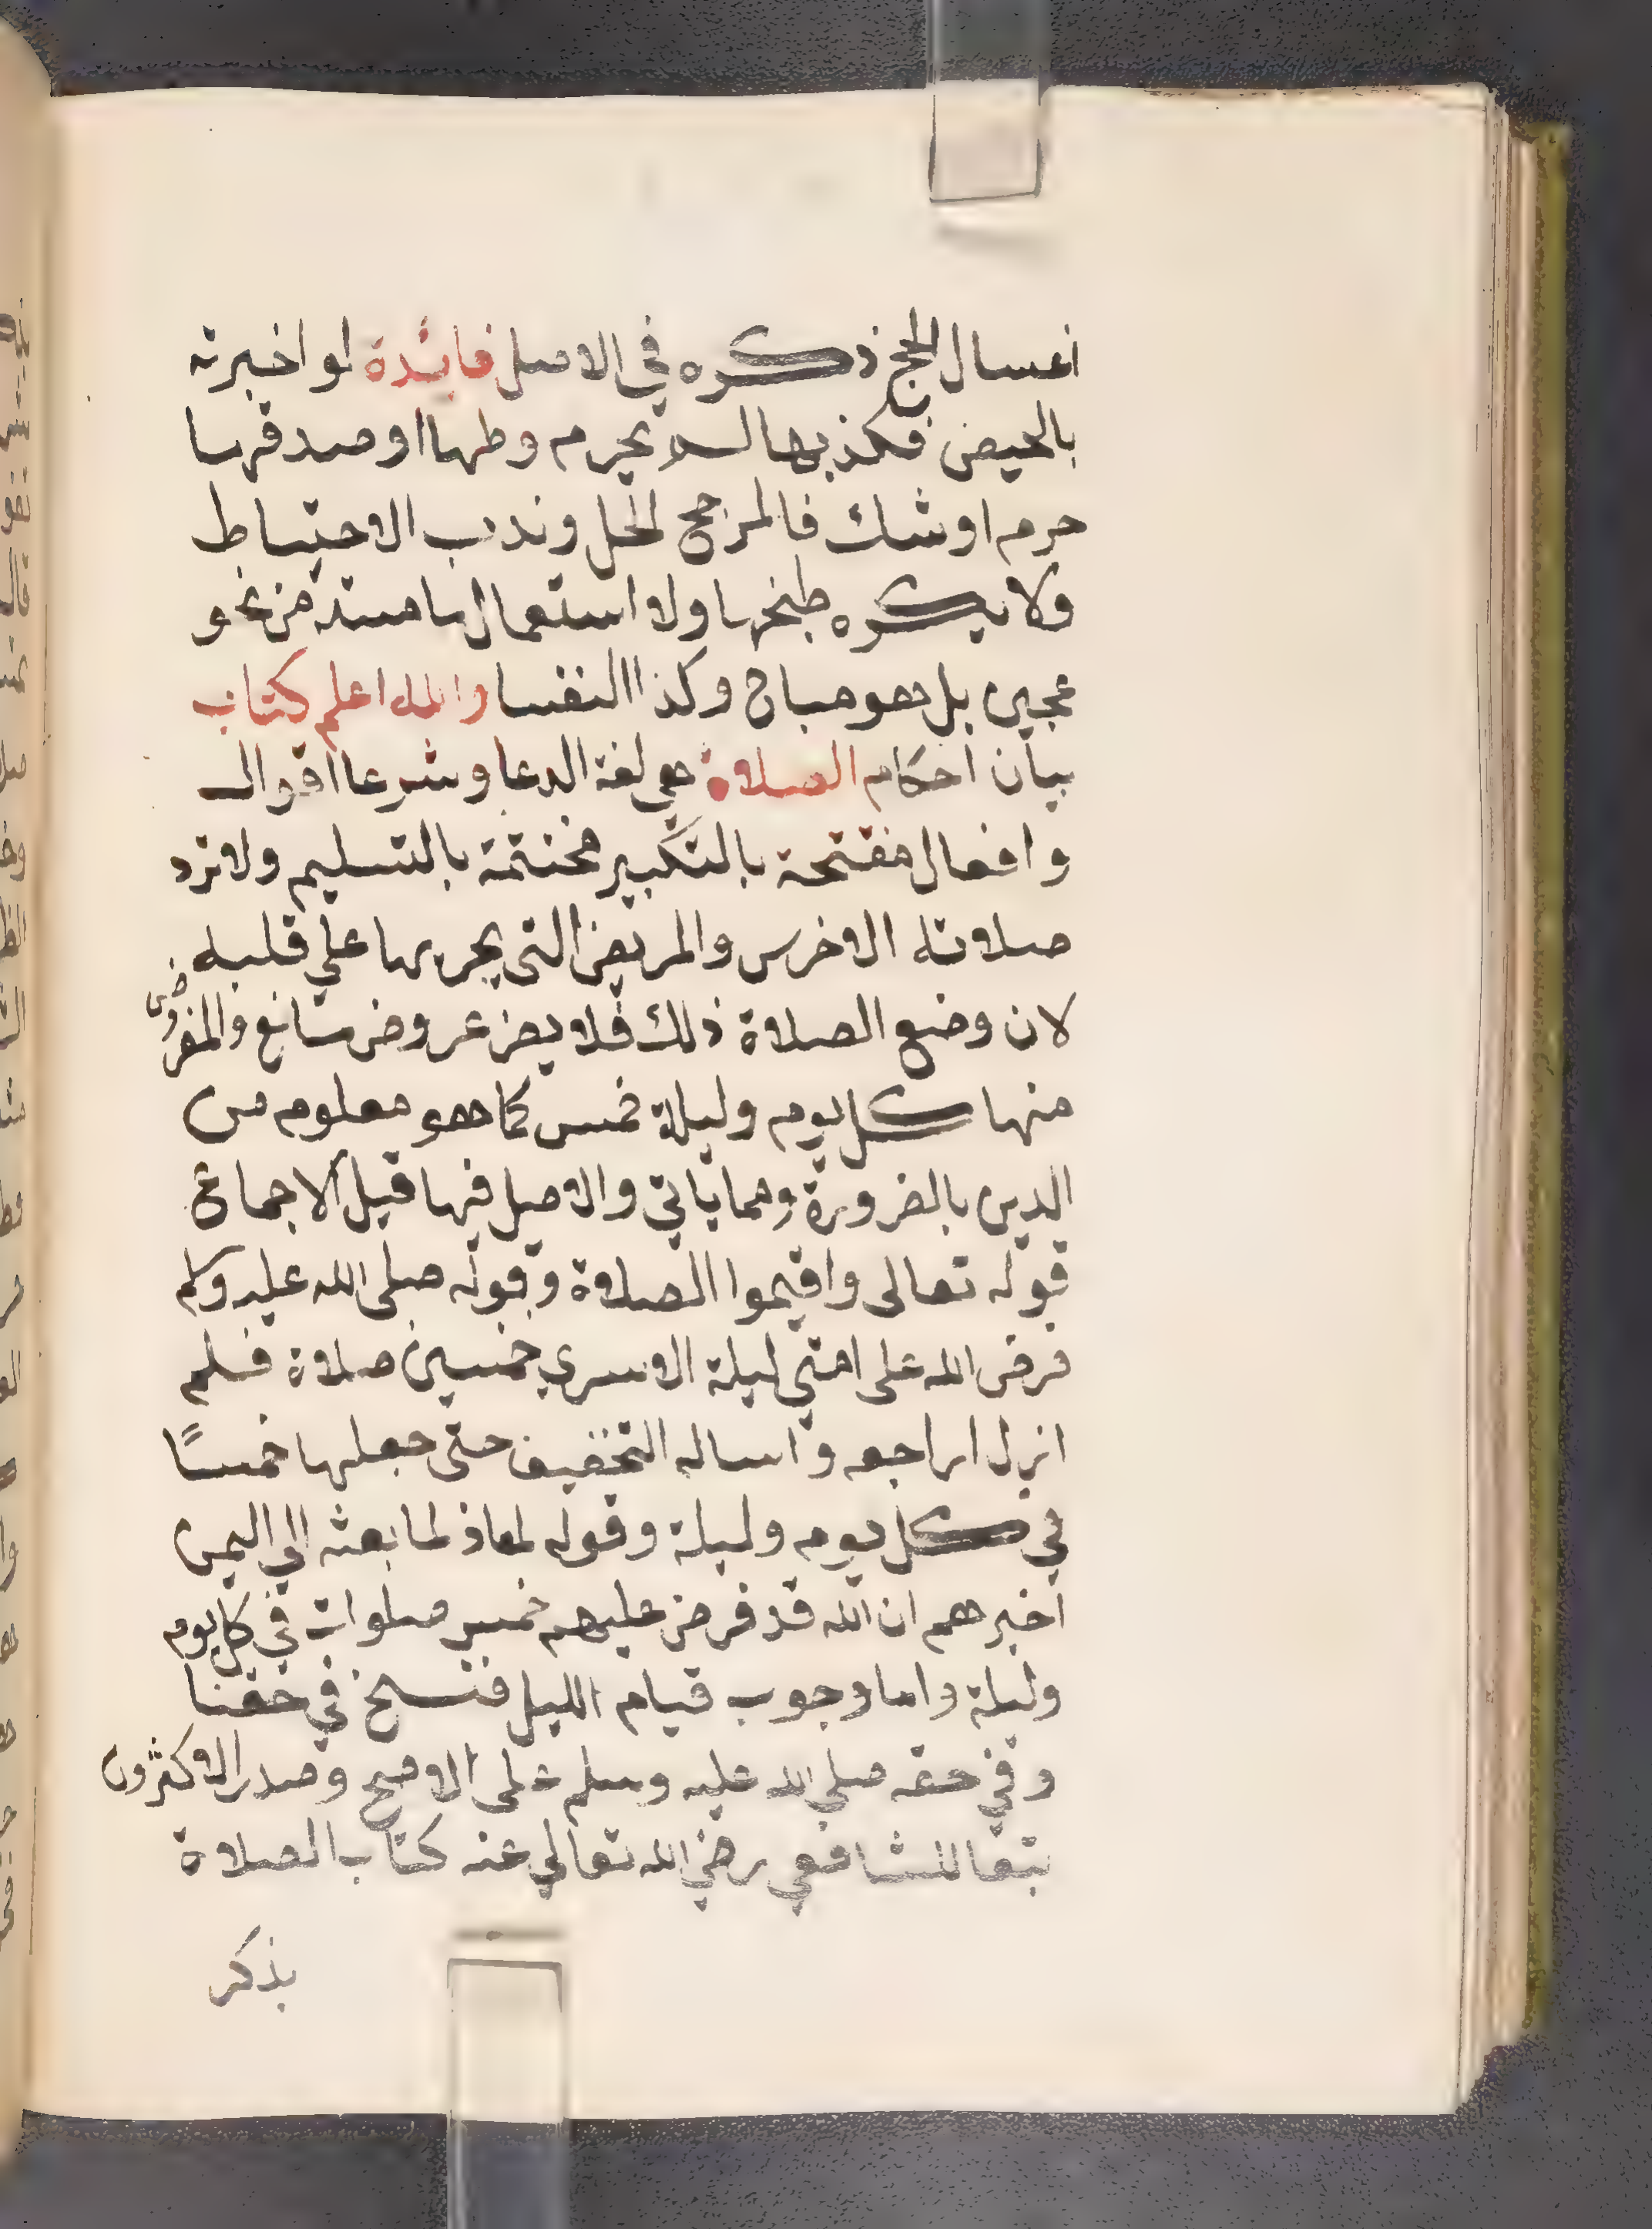 اغسال الحج ذكره في الاصل فايدة لو اخبرته
بالحيض فكذبها لم يحرم وطها او صدقها
حرم او شك فالمرجح الحل وندب الاحتياط
ولا يكره طبخها ولا استعمال ما مسته من نحو
عجين بل هو مباح وكذا النفسا والله اعلم كتاب
بيان احكام الصلاة هي لغة الدعا وشرعا اقوال
وافعال مفتتحة بالتكبير مختتمة بالتسليم ولا ترد
صلاتة الاخرس والمريض التي يجريها علي قلبه
لان وضع الصلاة ذلك فلا يضر عروض مانع والمفروض
منها كل يوم وليلة خمس كما هو معلوم من
الدين بالضرورة ومما ياتي والاصل فيها قبل الاجماع
قوله تعالى واقيموا الصلاة وقوله صلى الله عليه وسلم
فرض الله على امتي ليلة الاسري خمسين صلاة فلم
ازل اراجعه واساله التخفيف حتى جعلها خمسًا
في كل يوم وليلة وقوله لمعاذ لما بعثه الي اليمن
اخبرهم ان الله قد فرض عليهم خمس صلوات في كل يوم
وليلة واما وجوب قيام الليل فنسخ في حقنا
وفي حقه صلي الله عليه وسلم على الاصح وصدر الاكثرون
تبعا للشافعي رضي الله تعالي عنه كتاب الصلاة
بذكر